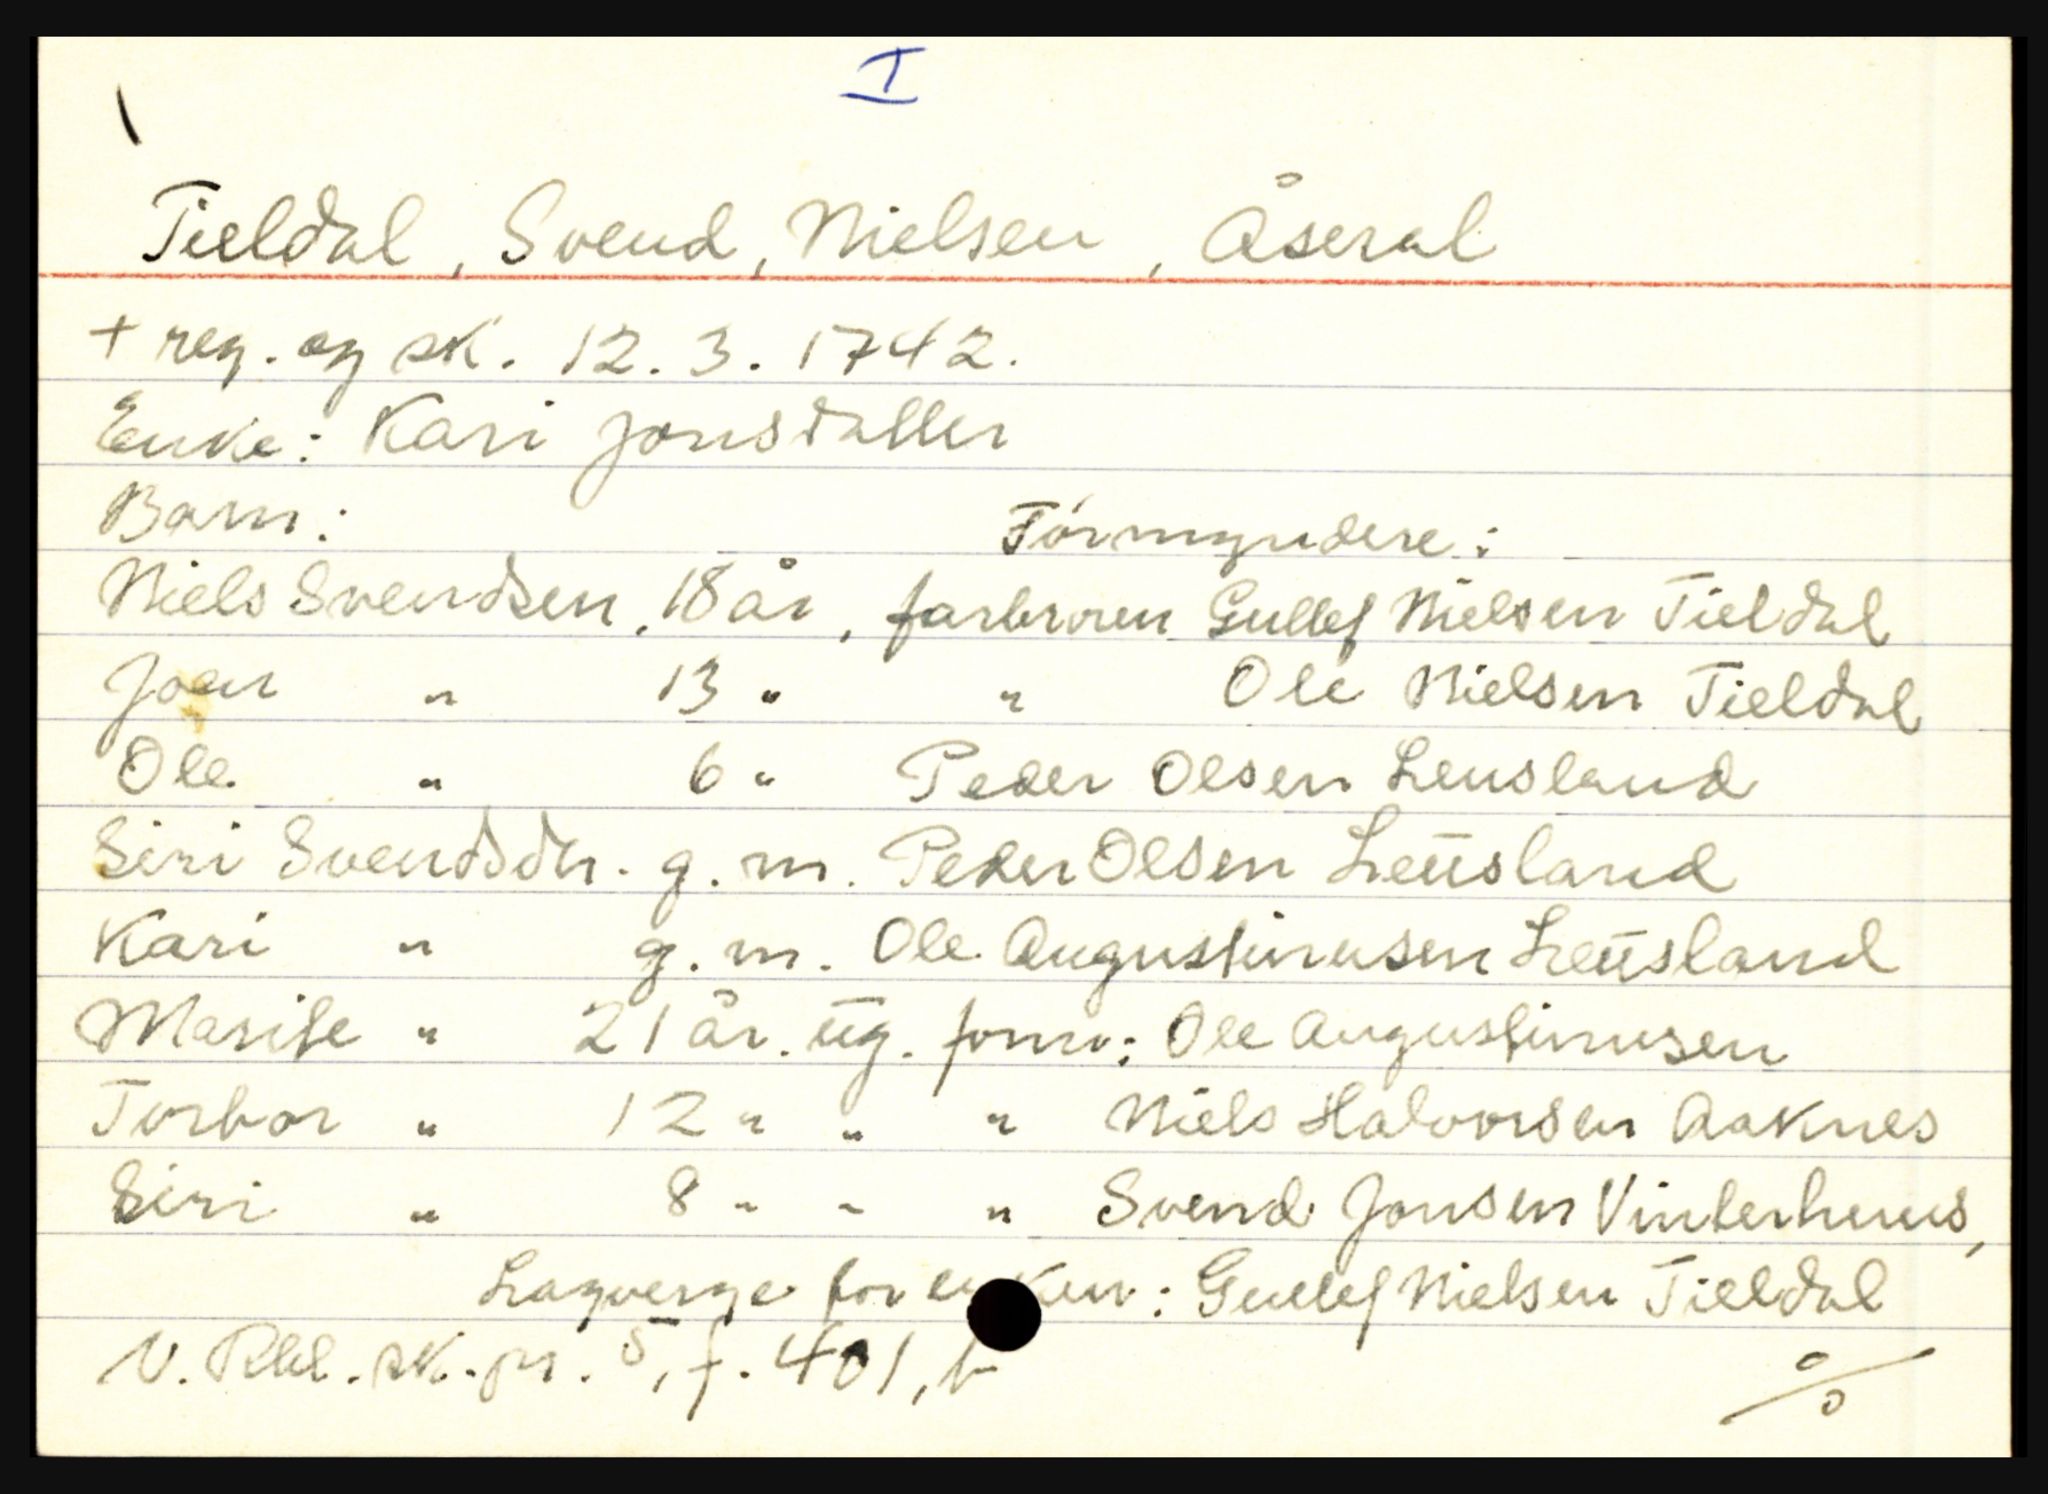 I
Tieldal, Svend, Nielsen, Åseral
+ reg. og sk. 12. 3. 1742.
Enke: Kari Jonsdatter
Barn: Formyndere:
Niels Svendsen, 18 år, farbroren Gullef Nielsen Tieldal
Joen " 13 " " Ole Nielsen Tieldal
Ole " 6 " Peder Olsen Leusland
Siri Svendsdtr. g. m. Peder Olsen Leusland
Kari " g. m. Ole Augustinusen Leusland
Marite " 21 år. ug. form: Ole Augustinusen
Torbor " 12 " " " Niels Halvorsen Aaknes
Siri " 8 " " " Svend Jonsen Vinterhuus,
Lagverge for enken: Gullef Nielsen Tieldal
N. Rbl. sk. pr. 5, f. 401, b
%